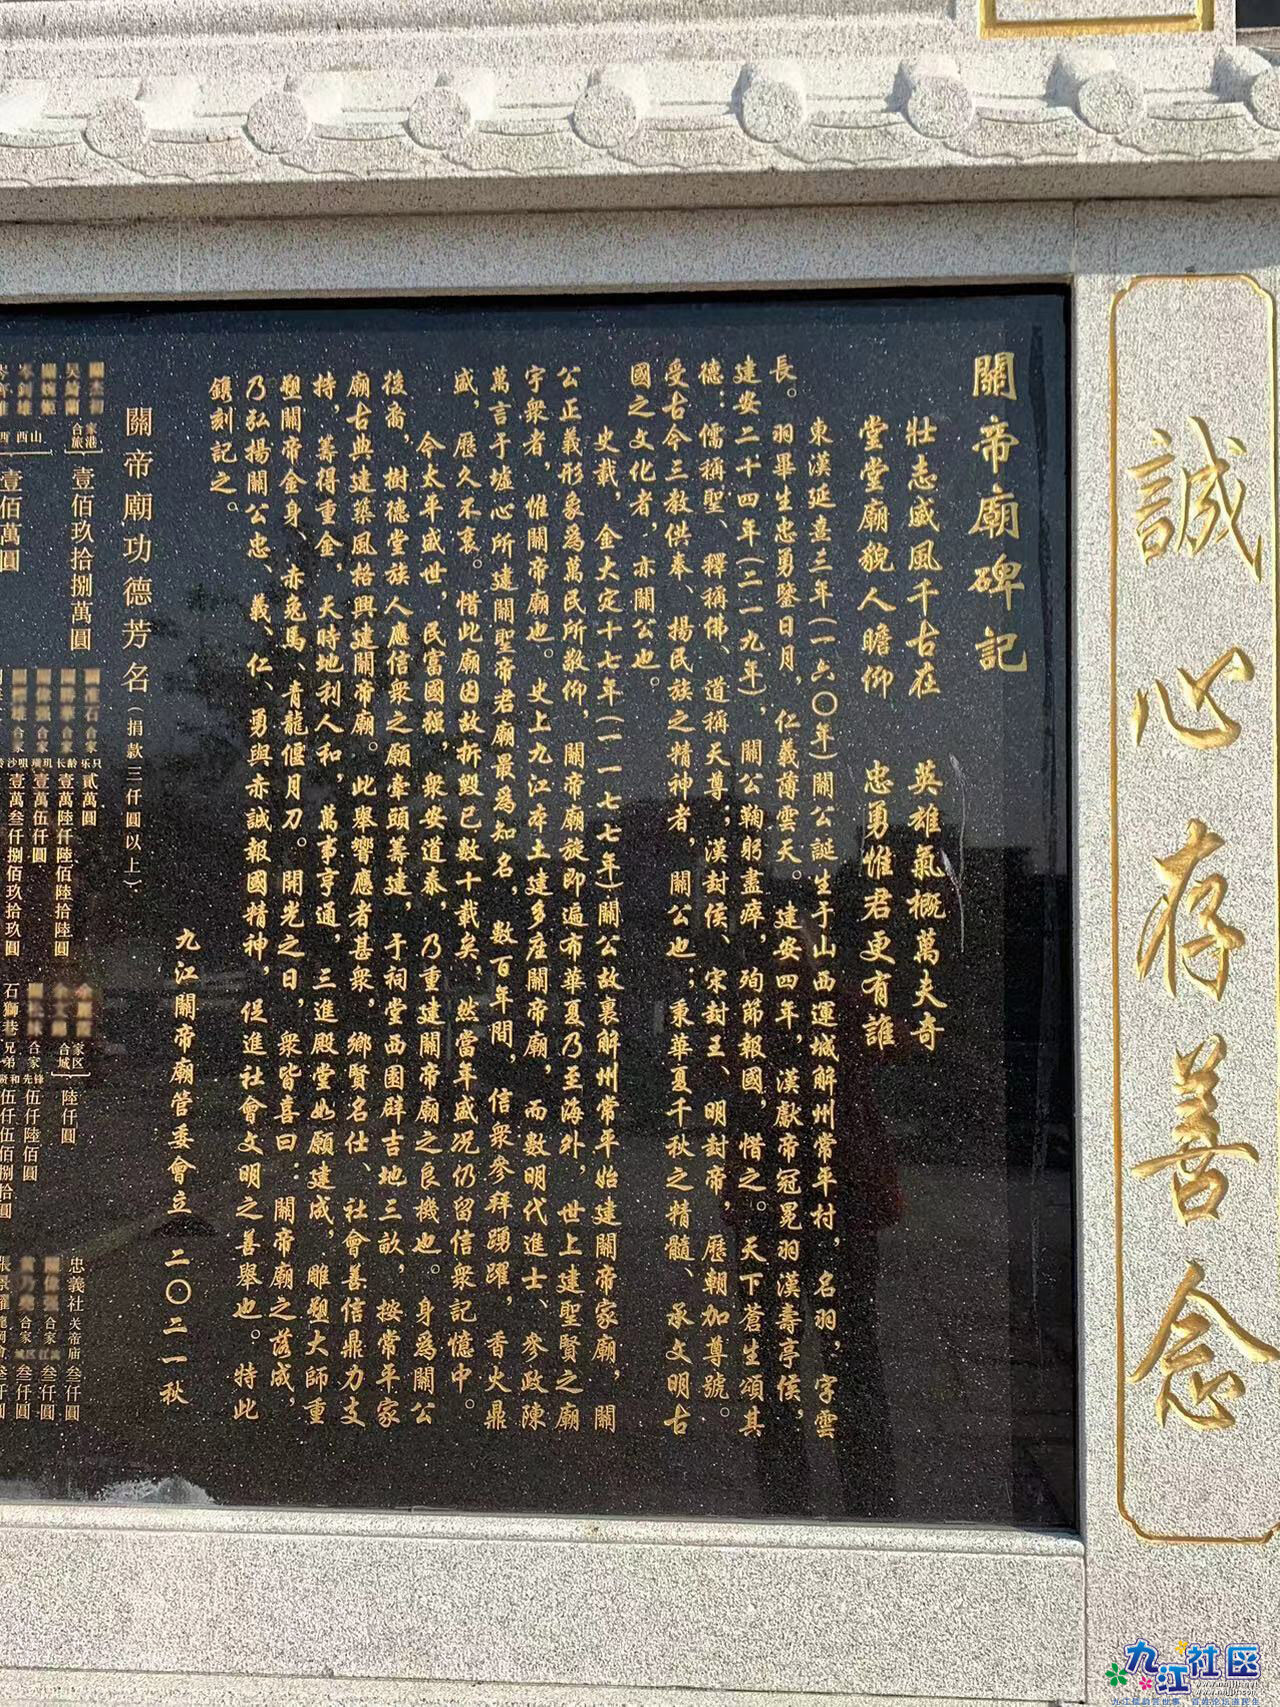 誠心存善念
關帝廟碑記
壯志威風千古在　英雄氣概萬夫奇
堂堂廟貌人瞻仰　忠勇惟君更有誰
東漢延熹三年(一六〇年)關公誕生于山西運城解州常平村，名羽，字雲
長。羽畢生忠勇鑒日月，仁義薄雲天。建安四年，漢獻帝冠冕羽漢壽亭侯，
建安二十四年(二一九年)，關公鞠躬盡瘁，殉節報國，惜之。天下蒼生頌其
德：儒稱聖、釋稱佛、道稱天尊，漢封侯、宋封王、明封帝，歷朝加尊號。
受古今三教供奉、揚民族之精神者，關公也；秉華夏千秋之精髓、承文明古
國之文化者，亦關公也。
史載，金大定十七年(一一七七年)關公故裏解州常平始建關帝家廟，關
公正義形象為萬民所敬仰，關帝廟旋即遍布華夏乃至海外，世上建聖賢之廟
宇衆者，惟關帝廟也。史上九江本土建多座關帝廟，而數明代進士、參政陳
萬言于墟心所建關聖帝君廟最為知名，數百年間，信衆參拜踴躍，香火鼎
盛，歷久不衰。惜此廟因故拆毀已數十載矣，然當年盛況仍留信衆記憶中。
今太平盛世，民富國强，衆安道泰，乃重建關帝廟之良機也。身為關公
後裔，樹德堂族人應信衆之願牽頭籌建，于祠堂西園辟吉地三畝，按常平家
廟古典建築風格興建關帝廟。此舉響應者甚衆，鄉賢名仕、社會善信鼎力支
持，籌得重金，天時地利人和，萬事亨通，三進殿堂如願建成，雕塑大師重
塑關帝金身、赤兔馬、青龍偃月刀。開光之日，衆皆喜曰：關帝廟之落成，
乃弘揚關公忠、義、仁、勇與赤誠報國精神，促進社會文明之善舉也。特此
鐫刻記之。
九江關帝廟管委會立　二〇二一秋
關帝廟功德芳名(捐款三仟圓以上)：
合家
旅港
壹佰玖拾捌萬圓
合家
貳萬圓
合家
壹萬陸仟陸佰陸拾圓
合家
壹萬伍仟圓
合家
壹萬叁仟捌佰玖拾玖圓
合家
陸仟圓
合家
伍仟陸佰圓
石獅巷兄弟
伍仟伍佰捌拾圓
忠義社关帝庙
叁仟圓
合家
叁仟圓
合家
叁仟圓
壹佰萬圓
九江社区